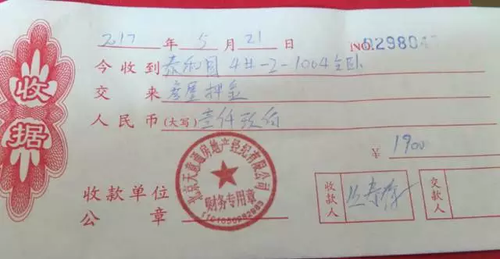 收据
2017 年 5 月 21 日 NO.
今收到 泰和园 4#-2-1004主卧
交来 房屋押金
人民币(大写) 壹仟玖佰
¥ 1900
收款单位
公章
北京天意通房地产经纪有限公司
财务专用章
收款人
交款人